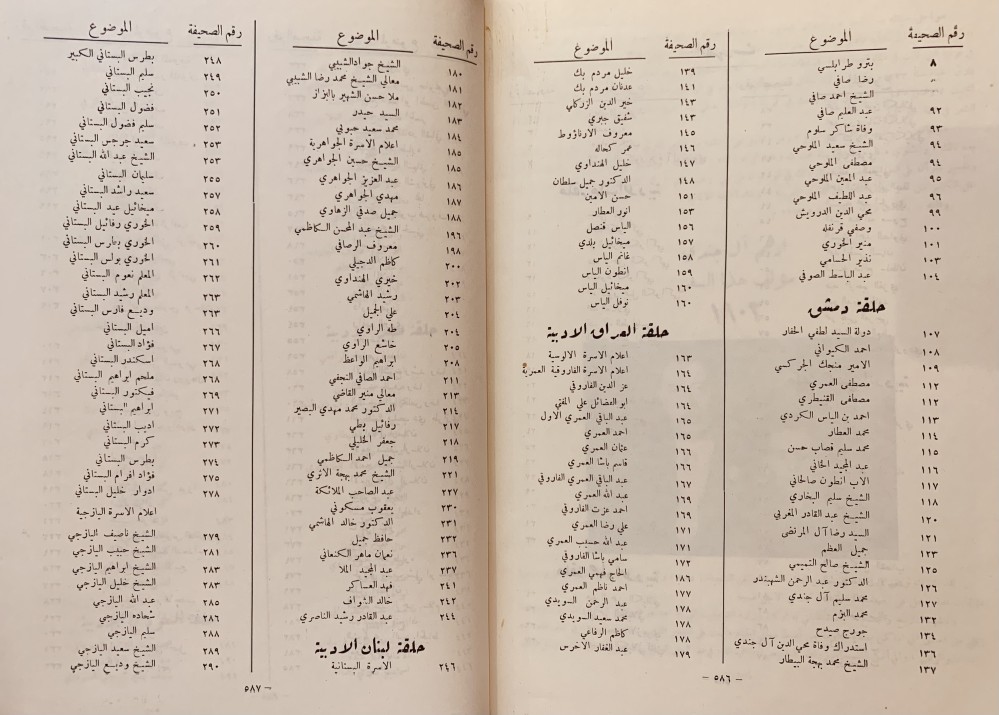 رقم الصحيفة الموضوع
٨ بترو طرابلسي
» رضا صافي
الشيخ احمد صافي
٩٢ عبد العليم صافي
٩٣ وفاة شاكر سلوم
٩٤ الشيخ سعيد الملوحي
٩٤ مصطفى الملوحي
٩٥ عبد المعين الملوحي
٩٦ عبد اللطيف الملوحي
٩٩ محي الدين الدرويش
١٠٠ وصفي قرنفله
١٠١ منير الخوري
١٠٣ نذير الحسامي
١٠٤ عبد الباسط الصوفي
حلقة دمشق
١٠٧ دولة السيد لطفي الحفار
١٠٨ احمد الكيواني
١٠٩ الامير منجك الجركسي
١١٢ مصطفى العمري
١١٢ مصطفى القنيطري
١١٣ احمد بن الياس الكردي
١١٤ محمد العطار
١١٥ محمد سليم قصاب حسن
١١٦ عبد المجيد الخاني
١١٧ الاب انطون صالحاني
١١٨ الشيخ سليم البخاري
١٢٠ الشيخ عبد القادر المغربي
١٢١ السيد رضا آل المرتضى
١٢٣ جميل العظم
١٢٥ الشيخ صالح التميمي
١٢٦ الدكتور عبد الرحمن الشهبندر
١٢٧ محمد سليم آل جندي
١٣٢ محمد البزم
١٣٤ جورج صيدح
١٣٦ استدراك وفاة محي الدين آل جندي
١٣٧ الشيخ محمد بهجة البيطار
رقم الصحيفة الموضوع
١٣٩ خليل مردم بك
١٤١ عدنان مردم بك
١٤٣ خير الدين الزركلي
١٤٣ شفيق جبري
١٤٥ معروف الارناؤوط
١٤٦ عمر كحاله
١٤٧ خليل الهنداوي
١٤٨ الدكتور جميل سلطان
١٥١ حسن الامين
١٥٣ انور العطار
١٥٦ الياس قنصل
١٥٧ ميخائيل بلدي
١٥٨ غانم الياس
١٥٩ انطون الياس
١٦٠ ميخائيل الياس
١٦٠ نوفل الياس
حلقة العراق الادبية
١٦٣ اعلام الاسرة الالوسية
١٦٤ اعلام الاسرة الفاروقية العمرية
١٦٤ عز الدين الفاروقي
١٦٤ ابو الفضائل علي المفتي
١٦٥ عبد الباقي العمري الاول
١٦٥ احمد العمري
١٦٦ عثمان العمري
١٦٦ قاسم باشا العمري
١٦٧ عبد الباقي العمري الفاروقي
١٦٩ عبد الله العمري
١٦٩ احمد عزت الفاروقي
١٧١ علي رضا العمري
١٧١ عبد الله حسيب العمري
١٧٢ سامي باشا الفاروقي
١٨٦ الحاج فهمي العمري
١٧٧ احمد ناظم العمري
١٧٨ عبد الرحمن السويدي
١٧٨ محمد سعيد السويدي
١٧٨ كاظم الرفاعي
١٧٩ عبد الغفار الاخرس
- ٥٨٦ -
رقم الصحيفة الموضوع
١٨٠ الشيخ جواد الشبيبي
١٨١ معالي الشيخ محمد رضا الشبيبي
١٨٢ ملا حسن الشهير بالبزاز
١٨٣ السيد حيدر
١٨٤ محمد سعيد حبوبي
١٨٥ اعلام الاسرة الجواهرية
١٨٥ الشيخ حسين الجواهري
١٨٦ عبد العزيز الجواهري
١٨٧ مهدي الجواهري
١٨٨ جميل صدقي الزهاوي
١٩٦ الشيخ عبد المحسن الكاظمي
١٩٨ معروف الرصافي
٢٠٠ كاظم الدجيلي
٢٠٢ خيري الهنداوي
٢٠٣ رشيد الهاشمي
٢٠٤ علي الجميل
٢٠٤ طه الراوي
٢٠٥ خاشع الراوي
٢٠٨ ابراهيم الواعظ
٢١١ احمد الصافي النجفي
٢١٣ معالي منير القاضي
٢١٤ الدكتور محمد مهدي البصير
٢١٧ رفائيل بطي
٢١٨ جعفر الخليلي
٢١٩ جميل احمد الكاظمي
٢٢١ الشيخ محمد بهجة الاثري
٢٢٧ عبد الصاحب الملائكة
٢٣٠ يعقوب مسكوني
٢٣١ الدكتور خالد الهاشمي
٢٣٢ حافظ جميل
٢٣٦ نعمان ماهر الكنعاني
٢٣٧ عبد المجيد الملا
٢٤١ فهد العساكر
٢٤٢ خالد الشواف
٢٤٤ عبد القادر رشيد الناصري
حلقة لبنان الادبية
٢٤٦ الاسرة البستانية
رقم الصحيفة الموضوع
٢٤٨ بطرس البستاني الكبير
٢٤٩ سليم البستاني
٢٥٠ نجيب البستاني
٢٥١ فضول البستاني
٢٥٢ سليم فضول البستاني
٢٥٣ سعيد جرجس البستاني
٢٥٣ الشيخ عبد الله البستاني
٢٥٥ سليمان البستاني
٢٥٧ سعيد راشد البستاني
٢٥٨ ميخائيل عيد البستاني
٢٥٩ الخوري رفائيل البستاني
٢٦٠ الخوري بطرس البستاني
٢٦١ الخوري بولس البستاني
٢٦٢ المعلم نعوم البستاني
٢٦٣ المعلم رشيد البستاني
٢٦٣ وديع فارس البستاني
٢٦٦ اميل البستاني
٢٦٧ فؤاد البستاني
٢٦٨ اسكندر البستاني
٢٦٨ ملحم ابراهيم البستاني
٢٦٩ فيكتور البستاني
٢٧١ ابراهيم البستاني
٢٧٢ اديب البستاني
٢٧٣ كرم البستاني
٢٧٤ بطرس البستاني
٢٧٥ فؤاد افرام البستاني
٢٧٨ ادوار خليل البستاني
اعلام الاسرة اليازجية
٢٧٩ الشيخ ناصيف اليازجي
٢٨١ الشيخ حبيب اليازجي
٢٨٣ الشيخ ابراهيم اليازجي
٢٨٣ الشيخ خليل اليازجي
٢٨٥ عبد الله اليازجي
٢٨٦ شحاده اليازجي
٢٨٨ سليم اليازجي
٢٨٩ الشيخ سعيد اليازجي
٢٩٠ الشيخ وديع اليازجي
- ٥٨٧ -